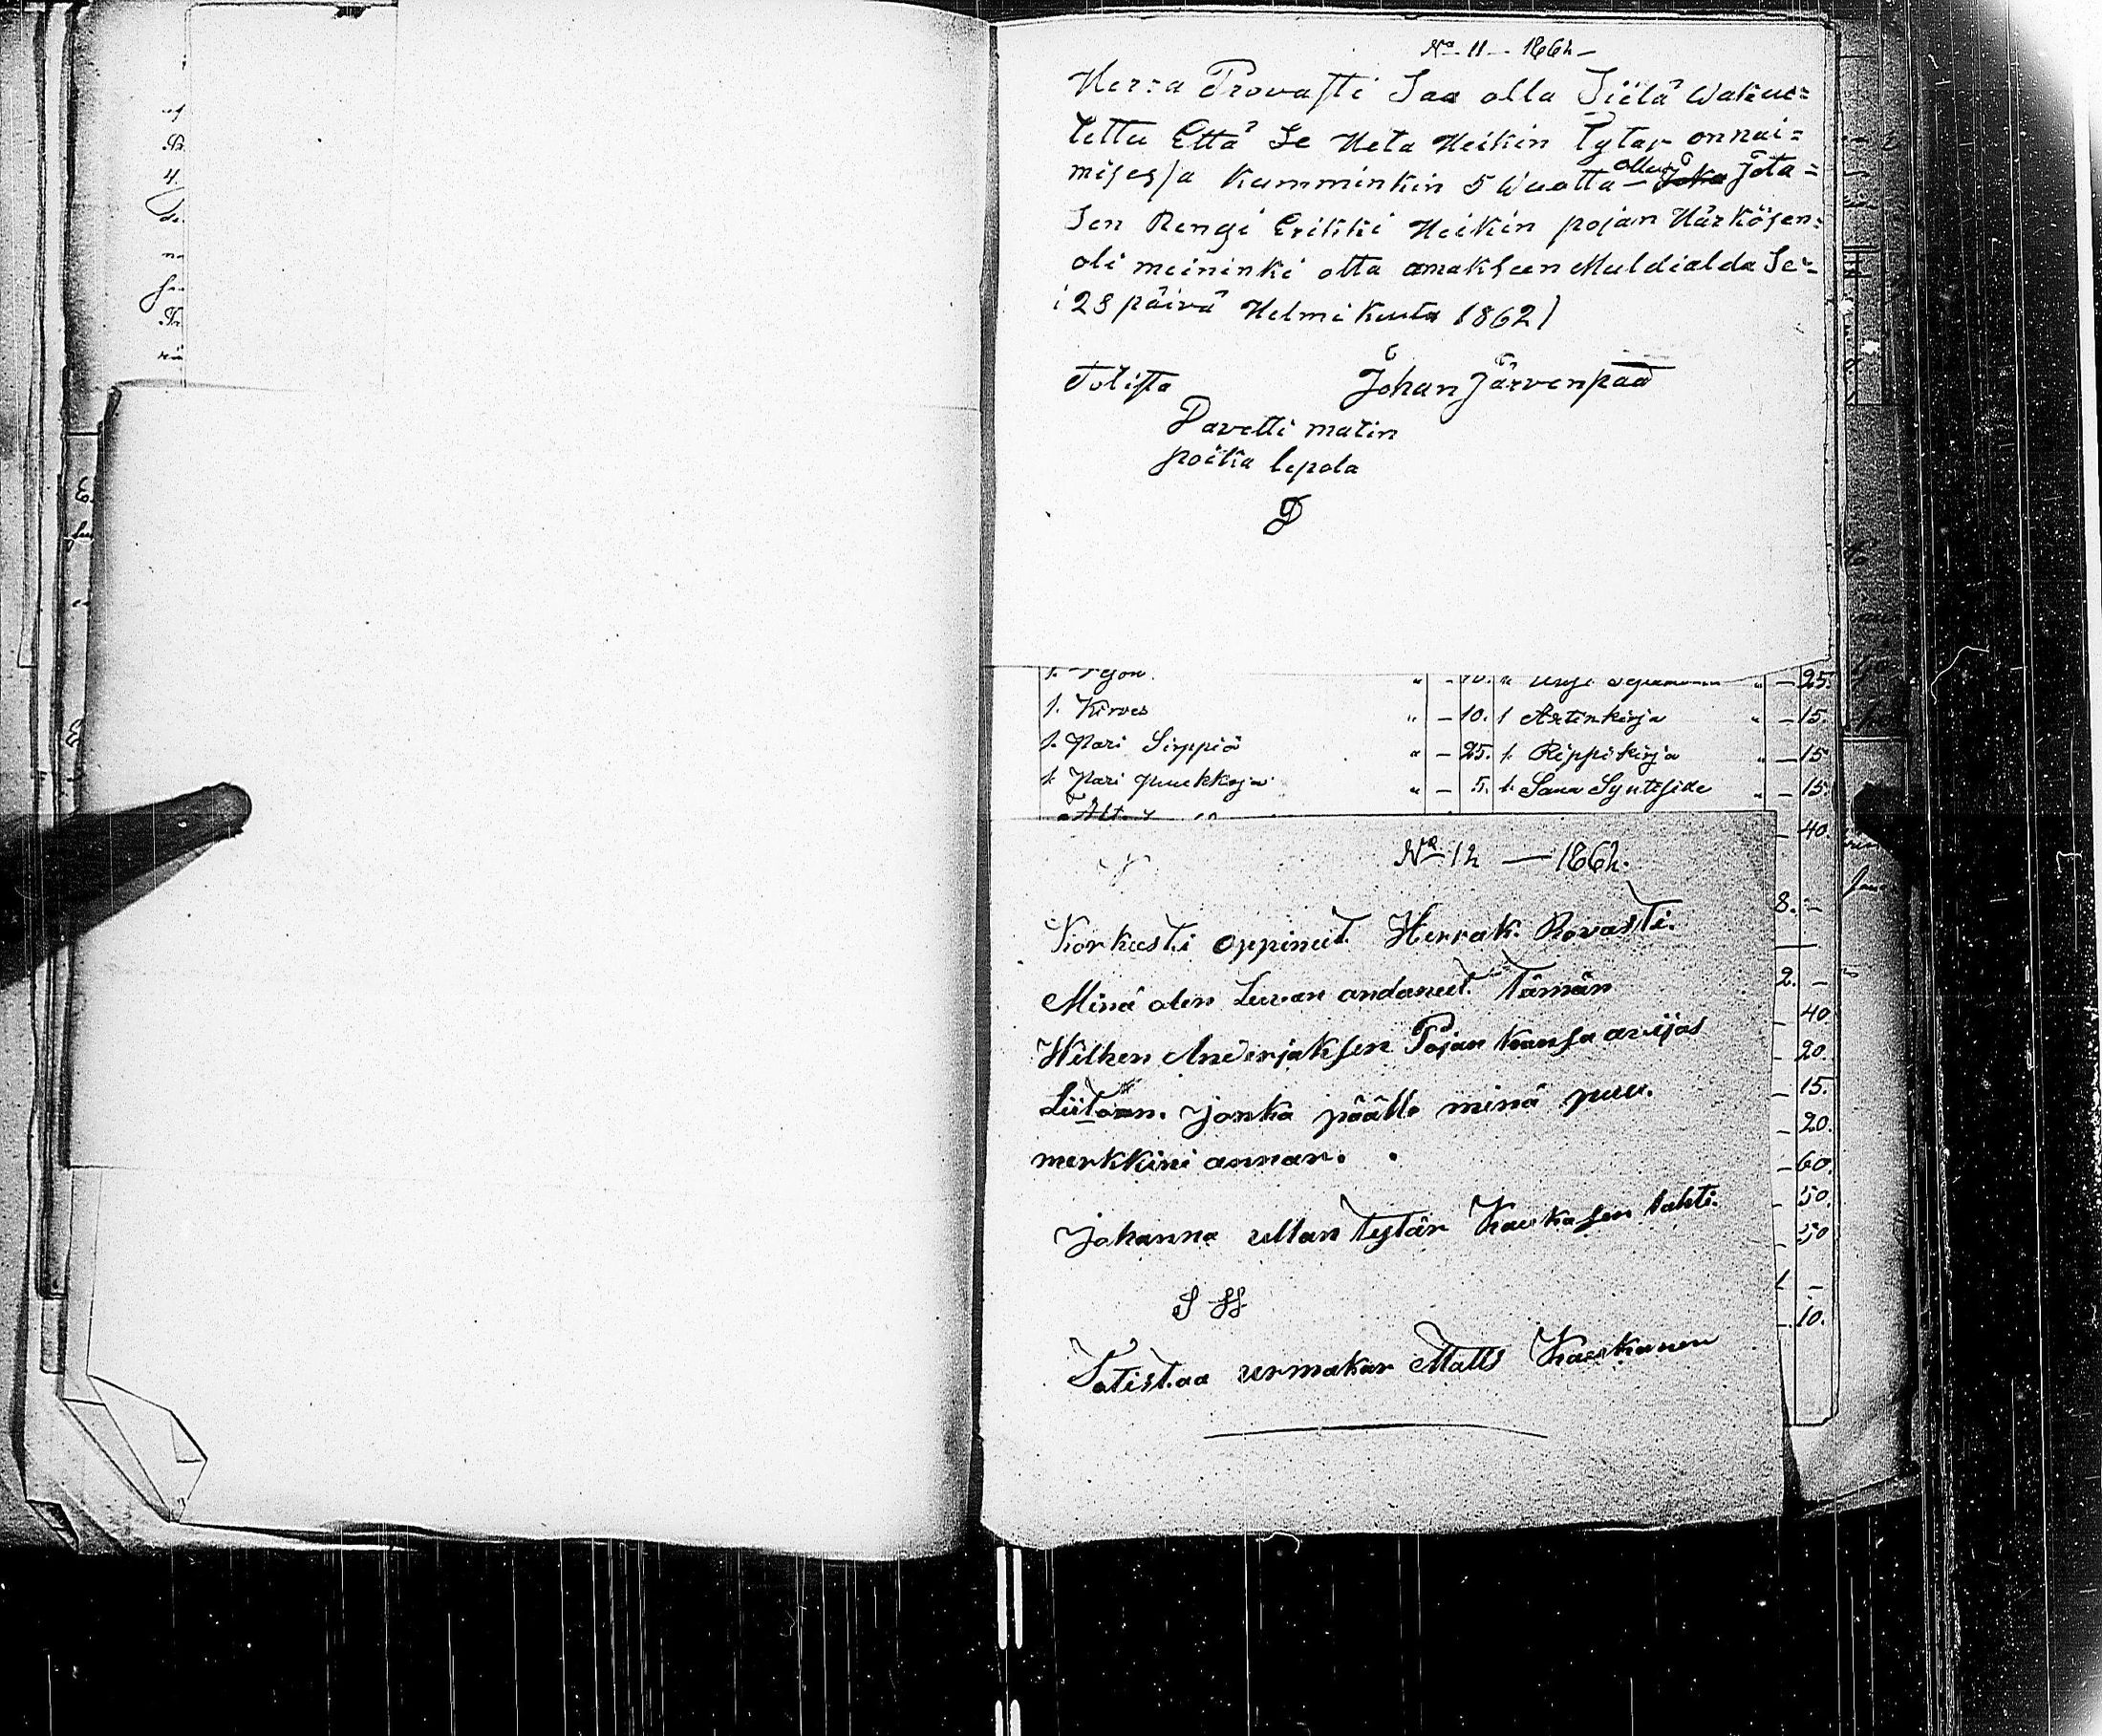 No 11 — 1862 —
Herra Provasti Saa olla Siitä Wakue=
tettu Että Se Heta Heikin Tytar on nai=
misesa kumminkin 5 Wuotta — ollut Joka Jota=
Sen Rengi Erikki Heikin pojan Härkösen=
oli meininki otta omakseen Muldialda Se=
i 28 päivä Helmi kuuta 1862)
Totista Johan Järvenpää
Davetti matin
poika lepola
D
1. Kirves " — 10. 1 Artinkirja " — 15.
1. Pari Sirppiä " — 25. 1. Rippikirja " — 15
1. Pari puukkoja " — 5. 1. Sana " — 15
— 40.
No 12 — 1862.
Korkusti oppinut Herrak. Rovasti.
8. —
Minä olen Luvan andanut Tämän
2. —
— 40
Wilhen Anderjaksen Pojan kansa avijas
— 20
Liitoon. jonka päälle minä puu.
— 15
— 20.
merkkini annan.
— 60.
— 50.
Johanna ullan tytär Kaukasen tahti.
— 50
1 —
— 10.
Totistaa urmakar Matts Kaukanen